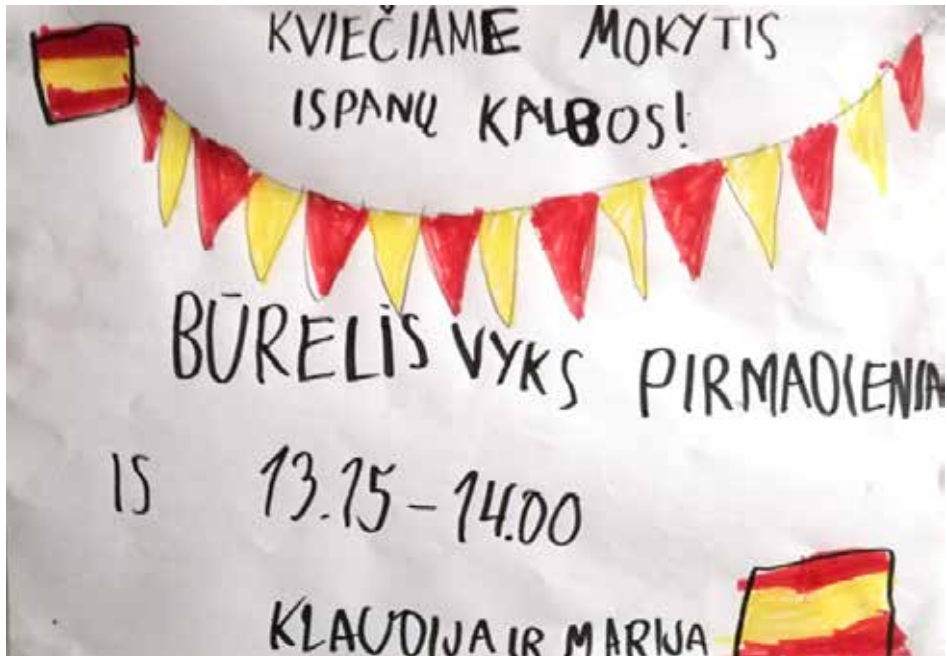 KVIEČIAME MOKYTIS
ISPANŲ KALBOS!
BŪRELIS VYKS PIRMADIENIA
IS 13.15-14.00
KLAUDIJA IR MARIJA